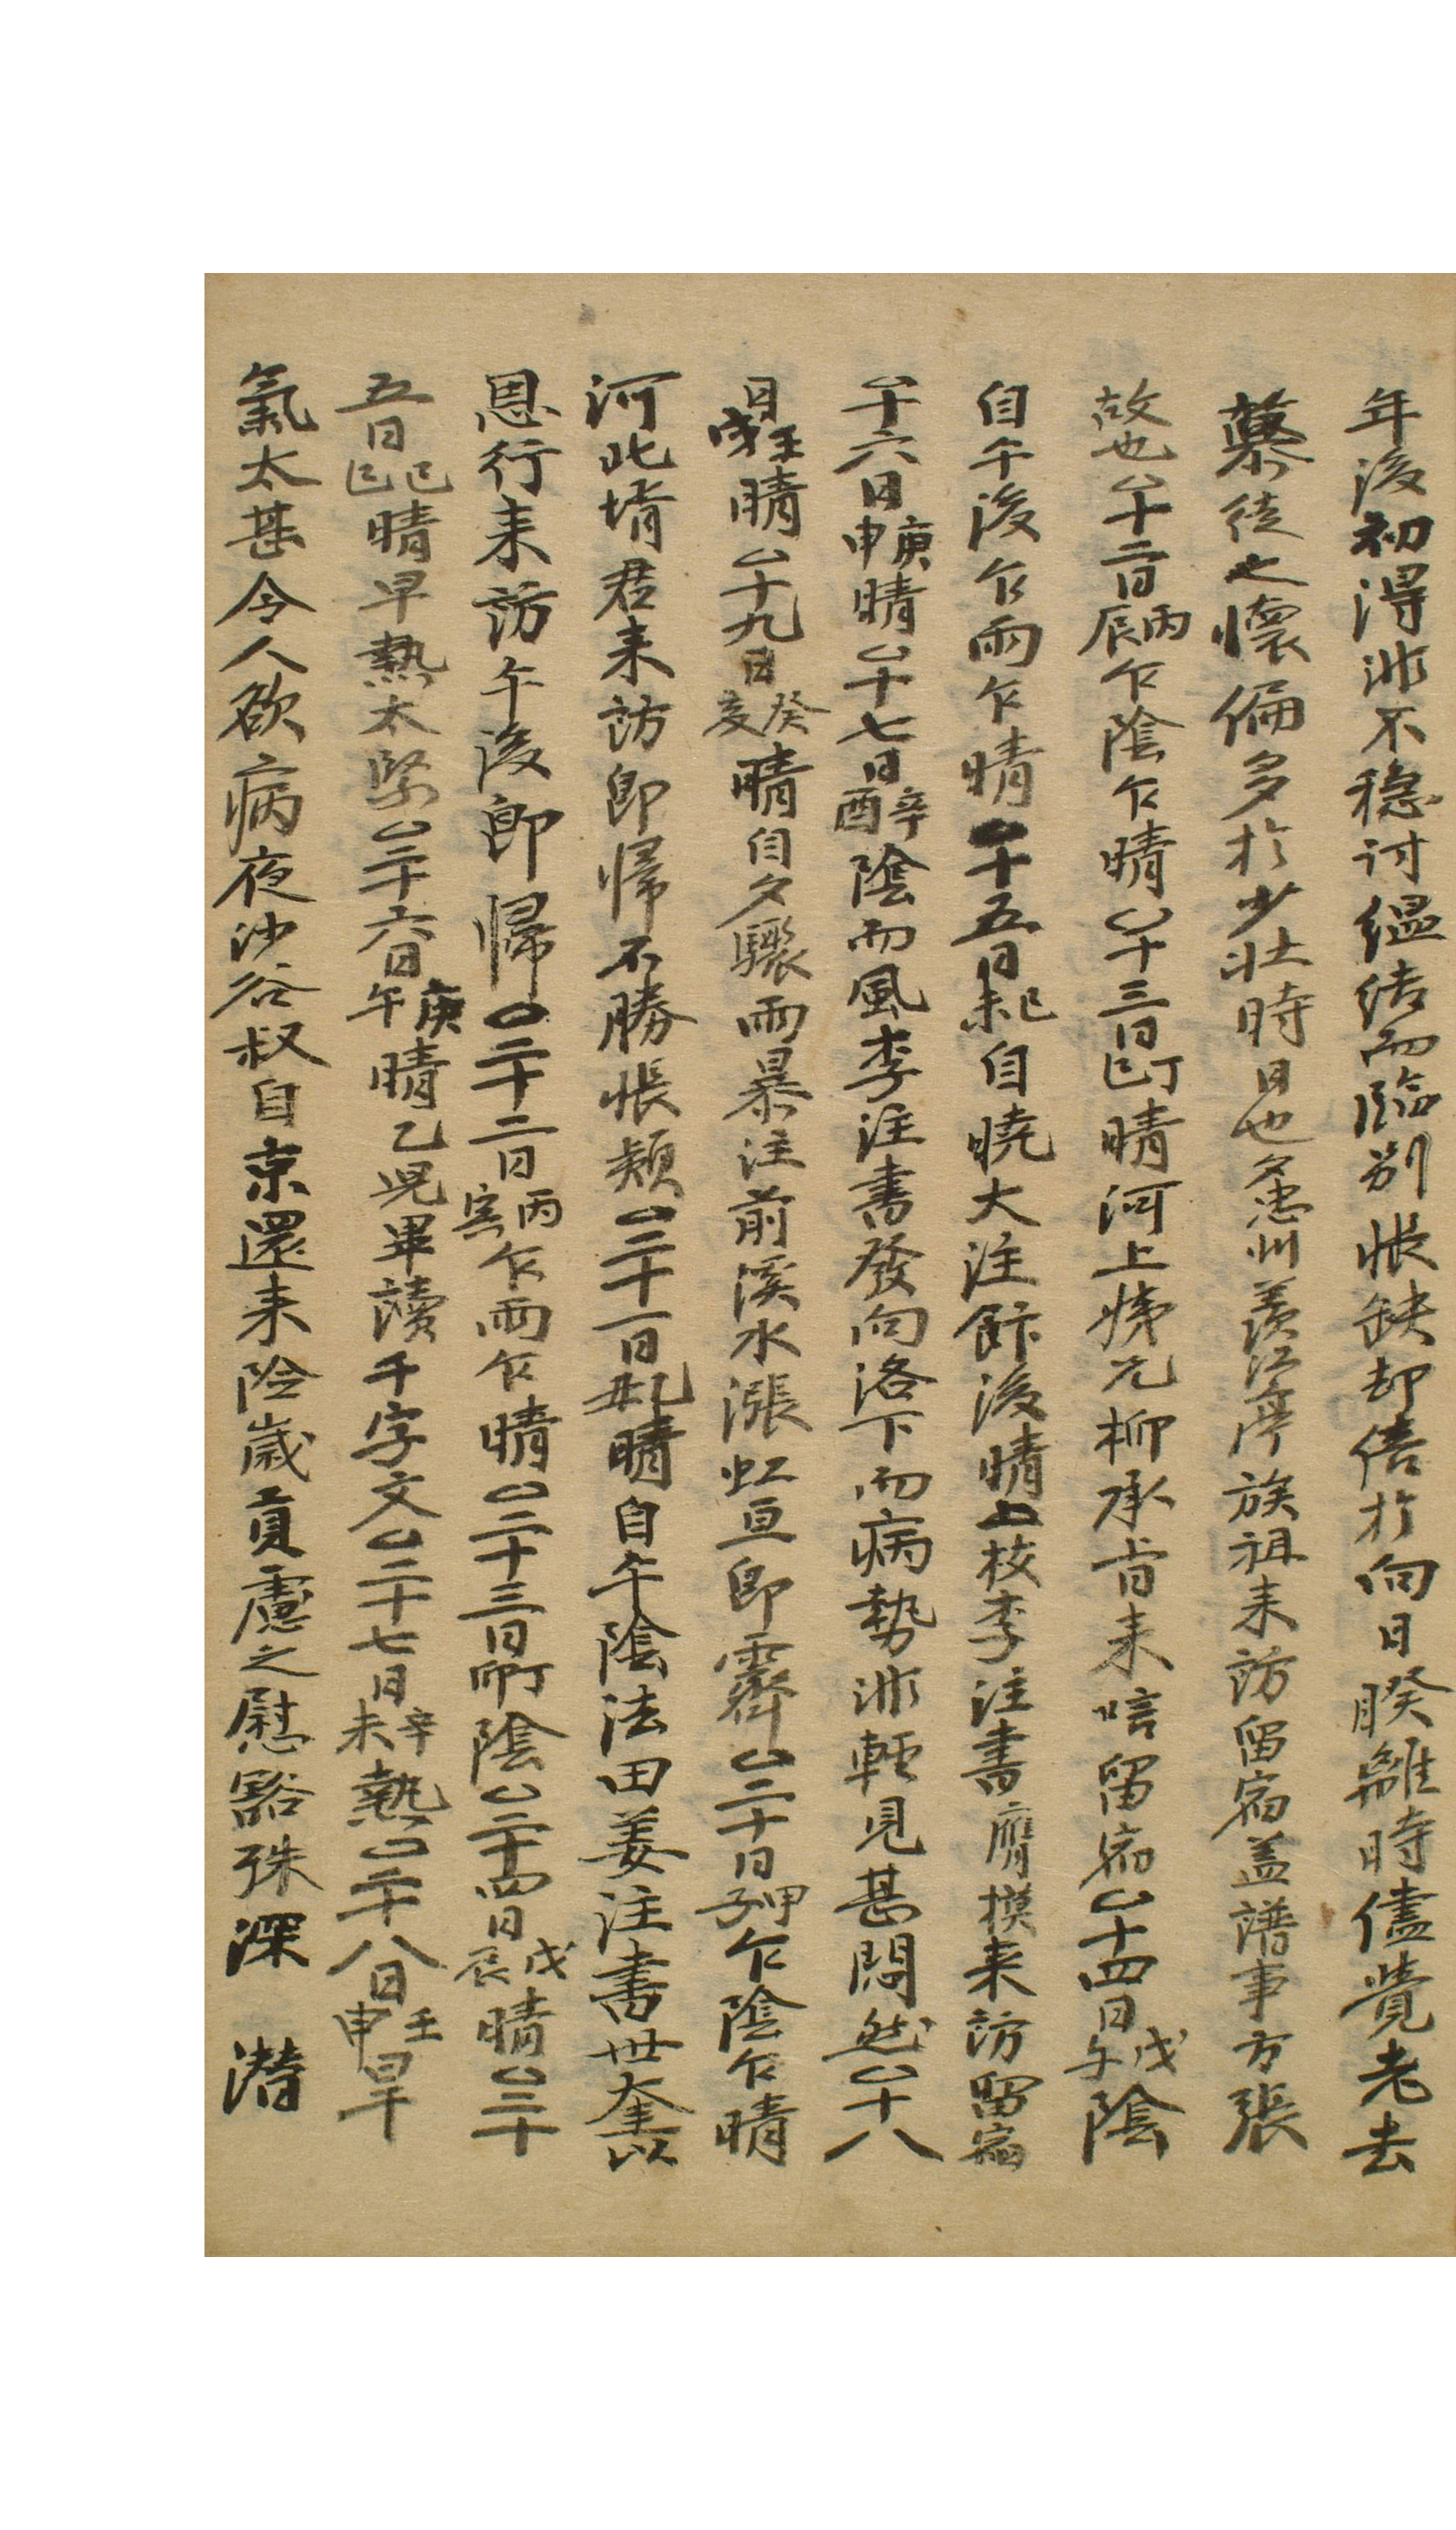 年後初得非不穩討縕結而臨別悵缺却倍於向日暌離時儘覺老去
慕徒之懷偏多於少壯時日也夕忠州羨江亭族祖来訪留宿盖譜事方張
故也○十二日丙辰乍陰乍晴○十三日丁巳晴河上姨兄柳承旨来唁留宿○十四日戊午陰
自午後乍雨乍晴○十五日己未自曉大注餘後晴○校李注書膺模来訪留宿
○十六日庚申晴○十七日辛酉陰而風李注書發向洛下而病勢非輕見甚悶然○十八
日壬戌晴○十九日癸亥晴自夕驟雨暴注前溪水漲虹亘卽霽○二十日甲子乍陰乍晴
河北壻君来訪卽歸不勝悵顙○二十一日乙丑晴自午陰法田姜注書世奎以
恩行来訪午後卽歸○二十二日丙寅乍雨乍晴○二十三日丁卯陰○二十四日戊辰晴○二十
五日己巳晴早熱太緊○二十六日庚午晴乙児畢讀千字文○二十七日辛未熱○二十八日壬申旱
氣太甚令人欲病夜沙谷叔自京還来險歲貢慮之慰豁殊深 潛